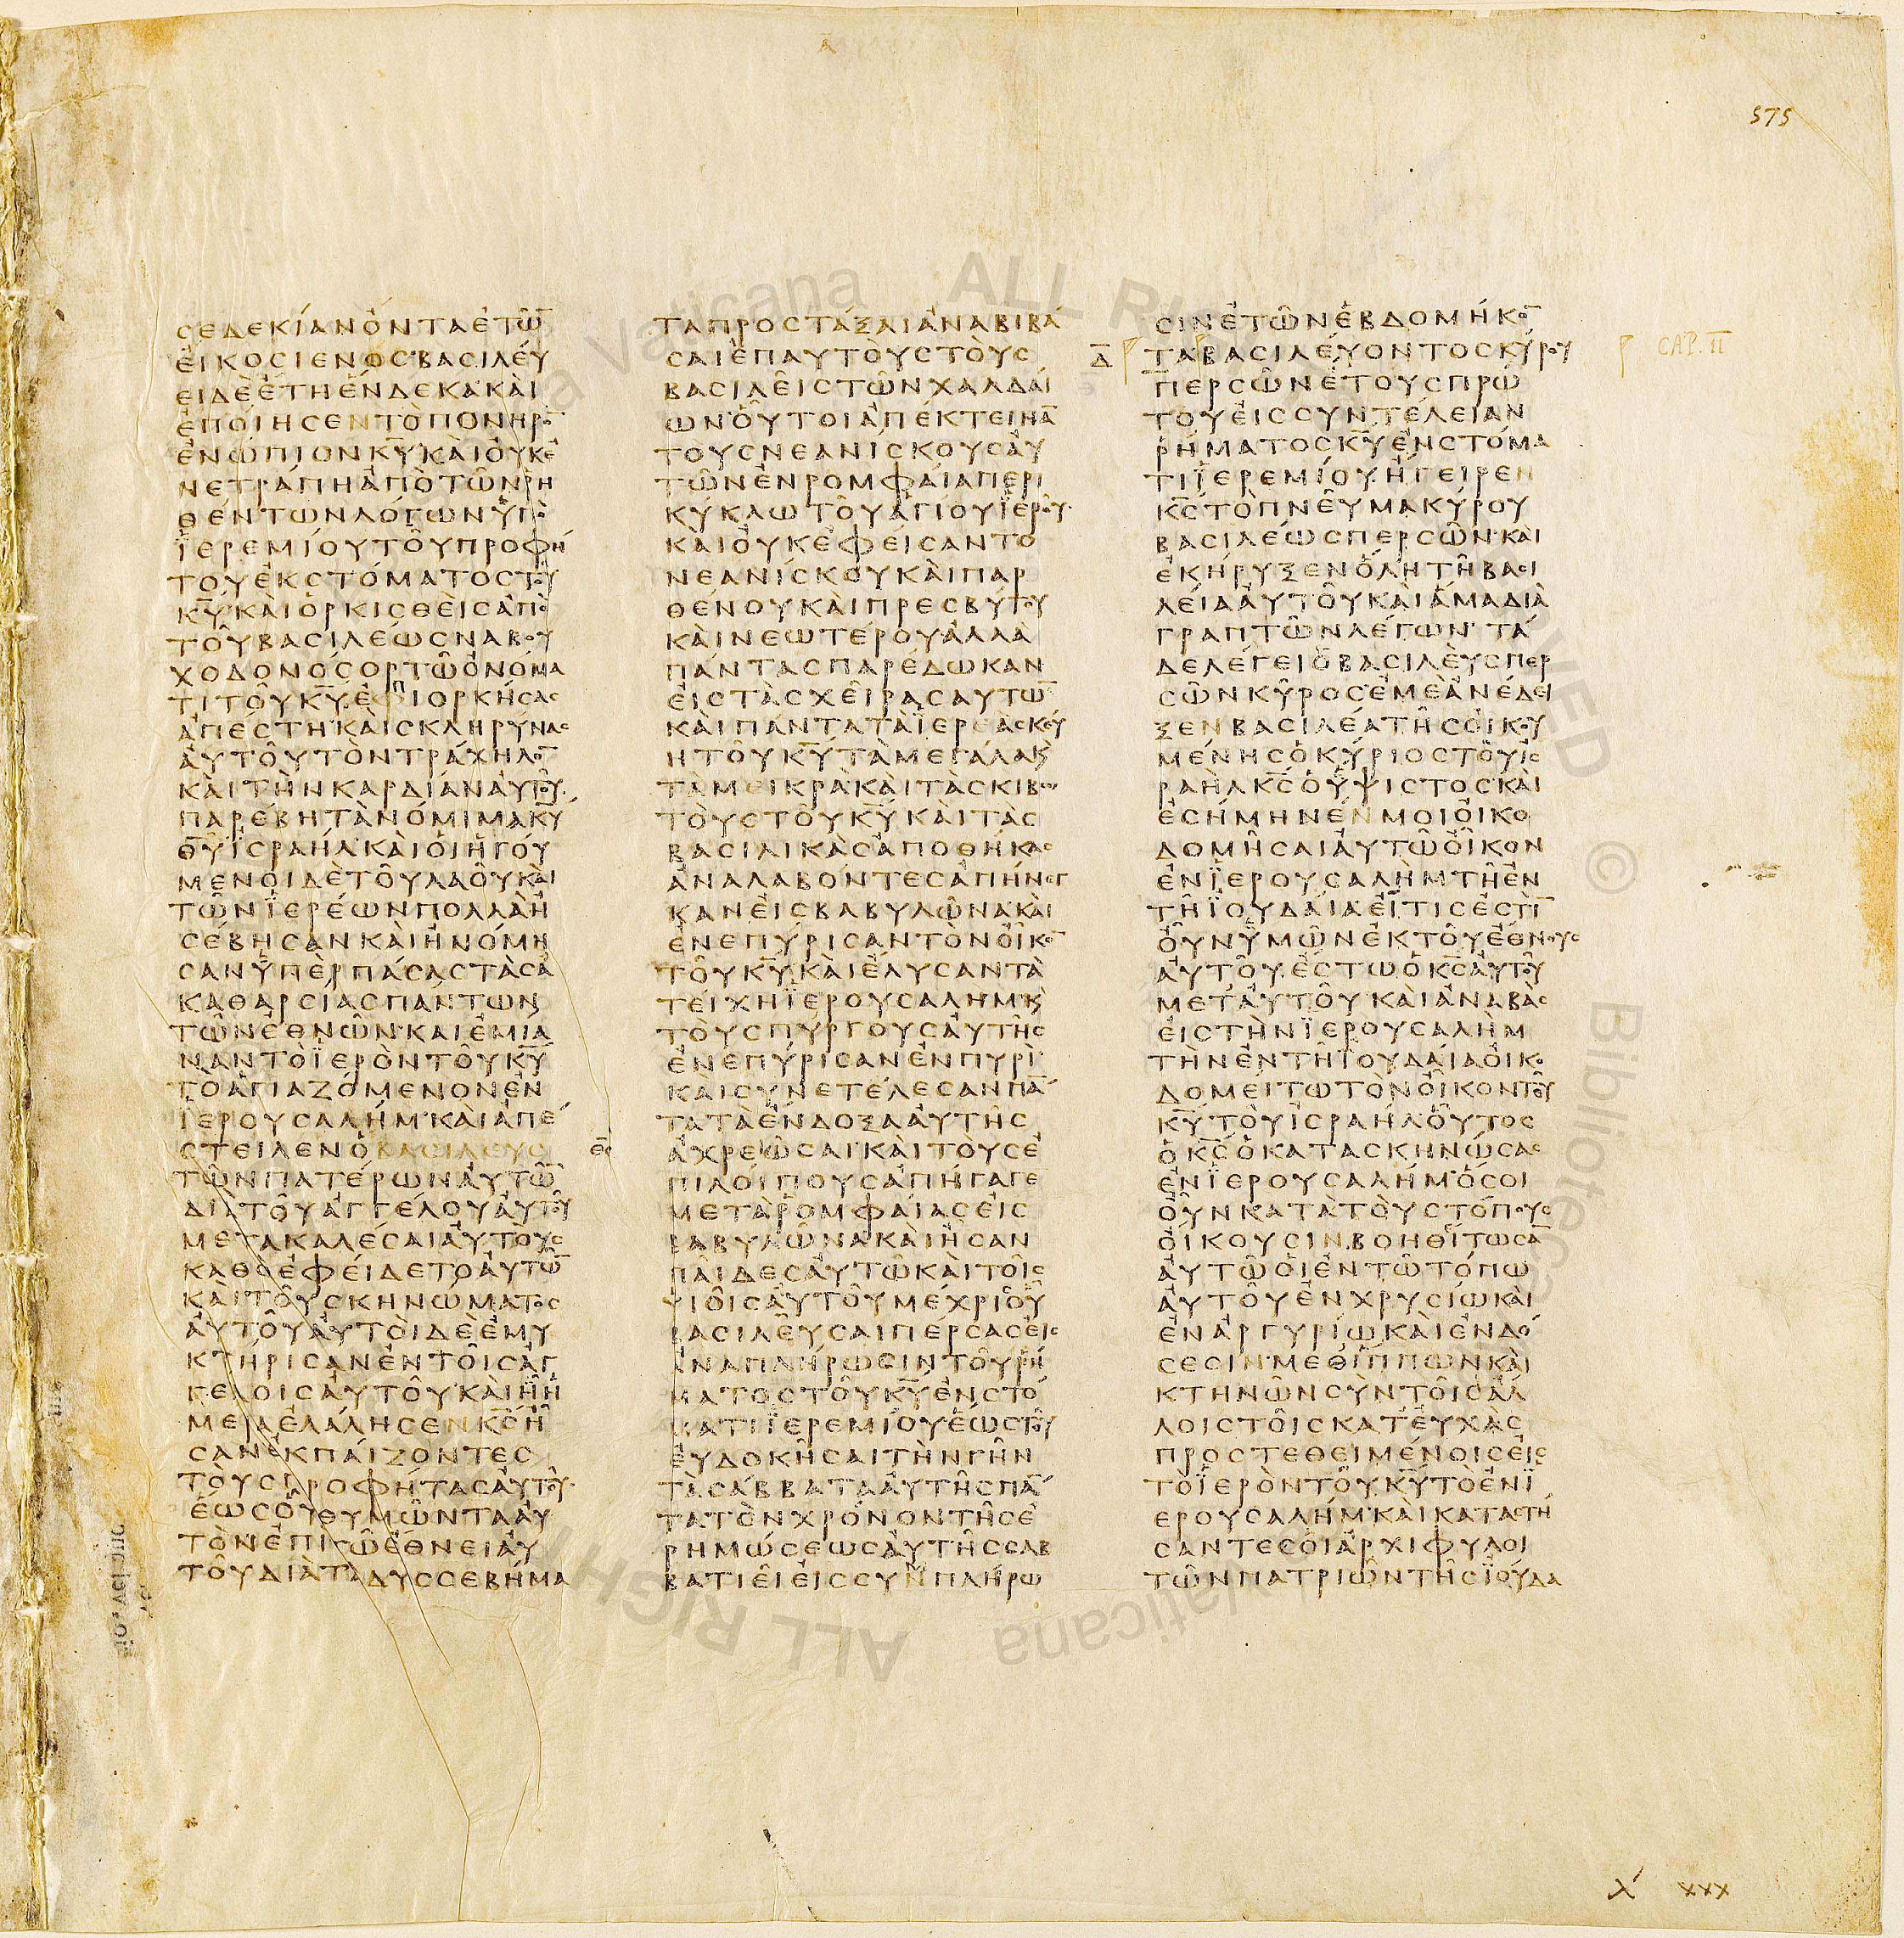 575
ϹΕΔΕΚΙΑΝΟΝΤΑΕΤΩ̅
ΕΙΚΟϹΙΕΝΟϹΒΑϹΙΛΕΥ
ΕΙΔΕΕΤΗΕΝΔΕΚΑΚΑΙ
ΕΠΟΙΗϹΕΝΤΟΠΟΝΗΡΟ̅
ΕΝΩΠΙΟΝΚ̅Υ̅ΚΑΙΟΥΚΕ
ΝΕΤΡΑΠΗΑΠΟΤΩΝΡΗ
ΘΕΝΤΩΝΛΟΓΩΝΥΠΟ
ΪΕΡΕΜΙΟΥΤΟΥΠΡΟΦΗ
ΤΟΥΕΚϹΤΟΜΑΤΟϹΤΟΥ
Κ̅Υ̅ΚΑΙΟΡΚΙϹΘΕΙϹΑΠΟ
ΤΟΥΒΑϹΙΛΕΩϹΝΑΒΟΥ
ΧΟΔΟΝΟϹΟΡΤΩΟΝΟΜΑ
ΤΙΤΟΥΚ̅Υ̅ΕΦΙΟΡΚΗϹΑϹ
ΑΠΕϹΤΗΚΑΙϹΚΛΗΡΥΝΑϹ
ΑΥΤΟΥΤΟΝΤΡΑΧΗΛΟ̅
ΚΑΙΤΗΝΚΑΡΔΙΑΝΑΥΤΟΥ
ΠΑΡΕΒΗΤΑΝΟΜΙΜΑΚ̅Υ̅
Θ̅Υ̅ΪϹΡΑΗΛΚΑΙΟΙΗΓΟΥ
ΜΕΝΟΙΔΕΤΟΥΛΑΟΥΚΑΙ
ΤΩΝΪΕΡΕΩΝΠΟΛΛΑΗ
ϹΕΒΗϹΑΝΚΑΙΗΝΟΜΗ
ϹΑΝΥΠΕΡΠΑϹΑϹΤΑϹΑ
ΚΑΘΑΡϹΙΑϹΠΑΝΤΩΝ
ΤΩΝΕΘΝΩΝΚΑΙΕΜΙΑ
ΝΑΝΤΟΪΕΡΟΝΤΟΥΚ̅Υ̅
ΤΟΑΓΙΑΖΟΜΕΝΟΝΕΝ
ΪΕΡΟΥϹΑΛΗΜΚΑΙΑΠΕ
ϹΤΕΙΛΕΝΟΒΑϹΙΛΕΥϹ
ΤΩΝΠΑΤΕΡΩΝΑΥΤΩ̅
ΔΙΑΤΟΥΑΓΓΕΛΟΥΑΥΤΟΥ
ΜΕΤΑΚΑΛΕϹΑΙΑΥΤΟΥϹ
ΚΑΘΟΕΦΕΙΔΕΤΟΑΥΤΩ̅
ΚΑΙΤΟΥϹΚΗΝΩΜΑΤΟϹ
ΑΥΤΟΥΑΥΤΟΙΔΕΕΜΥ
ΚΤΗΡΙϹΑΝΕΝΤΟΙϹΑΓ
ΓΕΛΟΙϹΑΥΤΟΥΚΑΙΗΗ
ΜΕΡΑΕΛΑΛΗϹΕΝΚ̅Ϲ̅Η
ϹΑΝΕΚΠΑΙΖΟΝΤΕϹ
ΤΟΥϹΠΡΟΦΗΤΑϹΑΥΤΟΥ
ΕΩϹΟΥΘΥΜΩΝΤΑΑΥ
ΤΟΝΕΠΙΤΩΕΘΝΕΙΑΥ
ΤΟΥΔΙΑΤΑΔΥϹϹΕΒΗΜΑ
ΤΑΠΡΟϹΤΑΞΑΙΑΝΑΒΙΒΑ
ϹΑΙΕΠΑΥΤΟΥϹΤΟΥϹ
ΒΑϹΙΛΕΙϹΤΩΝΧΑΛΔΑΙ
ΩΝΟΥΤΟΙΑΠΕΚΤΕΙΝΑ̅
ΤΟΥϹΝΕΑΝΙϹΚΟΥϹΑΥ
ΤΩΝΕΝΡΟΜΦΑΙΑΠΕΡΙ
ΚΥΚΛΩΤΟΥΑΓΙΟΥΪΕΡΟΥ
ΚΑΙΟΥΚΕΦΕΙϹΑΝΤΟ
ΝΕΑΝΙϹΚΟΥΚΑΙΠΑΡ
ΘΕΝΟΥΚΑΙΠΡΕϹΒΥΤΟΥ
ΚΑΙΝΕΩΤΕΡΟΥΑΛΛΑ
ΠΑΝΤΑϹΠΑΡΕΔΩΚΑΝ
ΕΙϹΤΑϹΧΕΙΡΑϹΑΥΤΩ̅
ΚΑΙΠΑΝΤΑΤΑΪΕΡΑϹΚΕΥ
ΗΤΟΥΚ̅Υ̅ΤΑΜΕΓΑΛΑΚϚ
ΤΑΜΕΙΚΡΑΚΑΙΤΑϹΚΙΒΩ
ΤΟΥϹΤΟΥΚ̅Υ̅ΚΑΙΤΑϹ
ΒΑϹΙΛΙΚΑϹΑΠΟΘΗΚΑϹ
ΑΝΑΛΑΒΟΝΤΕϹΑΠΗΝΕΓ
ΚΑΝΕΙϹΒΑΒΥΛΩΝΑΚΑΙ
ΕΝΕΠΥΡΙϹΑΝΤΟΝΟΙΚΟ̅
ΤΟΥΚ̅Υ̅ΚΑΙΕΛΥϹΑΝΤΑ
ΤΕΙΧΗΪΕΡΟΥϹΑΛΗΜΚϚ
ΤΟΥϹΠΥΡΓΟΥϹΑΥΤΗϹ
ΕΝΕΠΥΡΙϹΑΝΕΝΠΥΡΙ
ΚΑΙϹΥΝΕΤΕΛΕϹΑΝΠΑ̅
ΤΑΤΑΕΝΔΟΞΑΑΥΤΗϹ
ΑΧΡΕΩϹΑΙΚΑΙΤΟΥϹΕ
ΠΙΛΟΙΠΟΥϹΑΠΗΓΑΓΕ
ΜΕΤΑΡΟΜΦΑΙΑϹΕΙϹ
ΒΑΒΥΛΩΝΑΚΑΙΗϹΑΝ
ΠΑΙΔΕϹΑΥΤΩΚΑΙΤΟΙϹ
ΥΙΟΙϹΑΥΤΟΥΜΕΧΡΙΟΥ
ΒΑϹΙΛΕΥϹΑΙΠΕΡϹΑϹΕΙϹ
ΑΝΑΠΛΗΡΩϹΙΝΤΟΥΡΗ
ΜΑΤΟϹΤΟΥΚ̅Υ̅ΕΝϹΤΟ
ΜΑΤΙΪΕΡΕΜΙΟΥΕΩϹΤΟΥ
ΕΥΔΟΚΗϹΑΙΤΗΝΓΗΝ
ΤΑϹΑΒΒΑΤΑΑΥΤΗϹΠΑ̅
ΤΑΤΟΝΧΡΟΝΟΝΤΗϹΕ
ΡΗΜΩϹΕΩϹΑΥΤΗϹϹΑΒ
ΒΑΤΙΕΙΕΙϹϹΥΝΠΛΗΡΩ
ϹΙΝΕΤΩΝΕΒΔΟΜΗΚΟ̅
Δ̅ ΤΑΒΑϹΙΛΕΥΟΝΤΟϹΚΥΡΟΥ CAP. II
ΠΕΡϹΩΝΕΤΟΥϹΠΡΩ
ΤΟΥΕΙϹϹΥΝΤΕΛΕΙΑΝ
ΡΗΜΑΤΟϹΚ̅Υ̅ΕΝϹΤΟΜΑ
ΤΙΪΕΡΕΜΙΟΥΗΓΕΙΡΕΝ
Κ̅Ϲ̅ΤΟΠΝΕΥΜΑΚΥΡΟΥ
ΒΑϹΙΛΕΩϹΠΕΡϹΩΝΚΑΙ
ΕΚΗΡΥΞΕΝΟΛΗΤΗΒΑϹΙ
ΛΕΙΑΑΥΤΟΥΚΑΙΑΜΑΔΙΑ
ΓΡΑΠΤΩΝΛΕΓΩΝΤΑ
ΔΕΛΕΓΕΙΟΒΑϹΙΛΕΥϹΠΕΡ
ϹΩΝΚΥΡΟϹΕΜΕΑΝΕΔΕΙ
ΞΕΝΒΑϹΙΛΕΑΤΗϹΟΙΚΟΥ
ΜΕΝΗϹΟΚΥΡΙΟϹΤΟΥΙϹ
ΡΑΗΛΚ̅Ϲ̅ΟΥΨΙϹΤΟϹΚΑΙ
ΕϹΗΜΗΝΕΝΜΟΙΟΙΚΟ
ΔΟΜΗϹΑΙΑΥΤΩΟΙΚΟΝ
ΕΝΪΕΡΟΥϹΑΛΗΜΤΗΕΝ
ΤΗΪΟΥΔΑΙΑΕΙΤΙϹΕϹΤΙ̅
ΟΥΝΥΜΩΝΕΚΤΟΥΕΘΝΟΥϹ
ΑΥΤΟΥΕϹΤΩΟΚ̅Ϲ̅ΑΥΤΟΥ
ΜΕΤΑΥΤΟΥΚΑΙΑΝΑΒΑϹ
ΕΙϹΤΗΝΪΕΡΟΥϹΑΛΗΜ
ΤΗΝΕΝΤΗΪΟΥΔΑΙΑΟΙΚΟ
ΔΟΜΕΙΤΩΤΟΝΟΙΚΟΝΤΟΥ
Κ̅Υ̅ΤΟΥΙϹΡΑΗΛΟΥΤΟϹ
ΟΚ̅Ϲ̅ΟΚΑΤΑϹΚΗΝΩϹΑϹ
ΕΝΪΕΡΟΥϹΑΛΗΜΟϹΟΙ
ΟΥΝΚΑΤΑΤΟΥϹΤΟΠΟΥϹ
ΟΙΚΟΥϹΙΝΒΟΗΘΙΤΩϹΑ̅
ΑΥΤΩΟΙΕΝΤΩΤΟΠΩ
ΑΥΤΟΥΕΝΧΡΥϹΙΩΚΑΙ
ΕΝΑΡΓΥΡΙΩΚΑΙΕΝΔΟ
ϹΕϹΙΝΜΕΘΙΠΠΩΝΚΑΙ
ΚΤΗΝΩΝϹΥΝΤΟΙϹΑΛ
ΛΟΙϹΤΟΙϹΚΑΤΕΥΧΑϹ
ΠΡΟϹΤΕΘΕΙΜΕΝΟΙϹΕΙϹ
ΤΟΪΕΡΟΝΤΟΥΚ̅Υ̅ΤΟΕΝΪ
ΕΡΟΥϹΑΛΗΜΚΑΙΚΑΤΑϹΤΗ
ϹΑΝΤΕϹΟΙΑΡΧΙΦΥΛΟΙ
ΤΩΝΠΑΤΡΙΩΝΤΗϹΪΟΥΔΑ
λ xxx